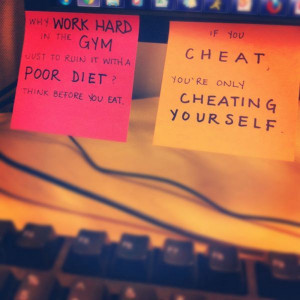 WHY WORK HARD
IN THE GYM
JUST TO RUIN IT WITH A
POOR DIET?
THINK BEFORE YOU EAT.
IF YOU
CHEAT.
YOU'RE ONLY
CHEATING
YOURSELF.